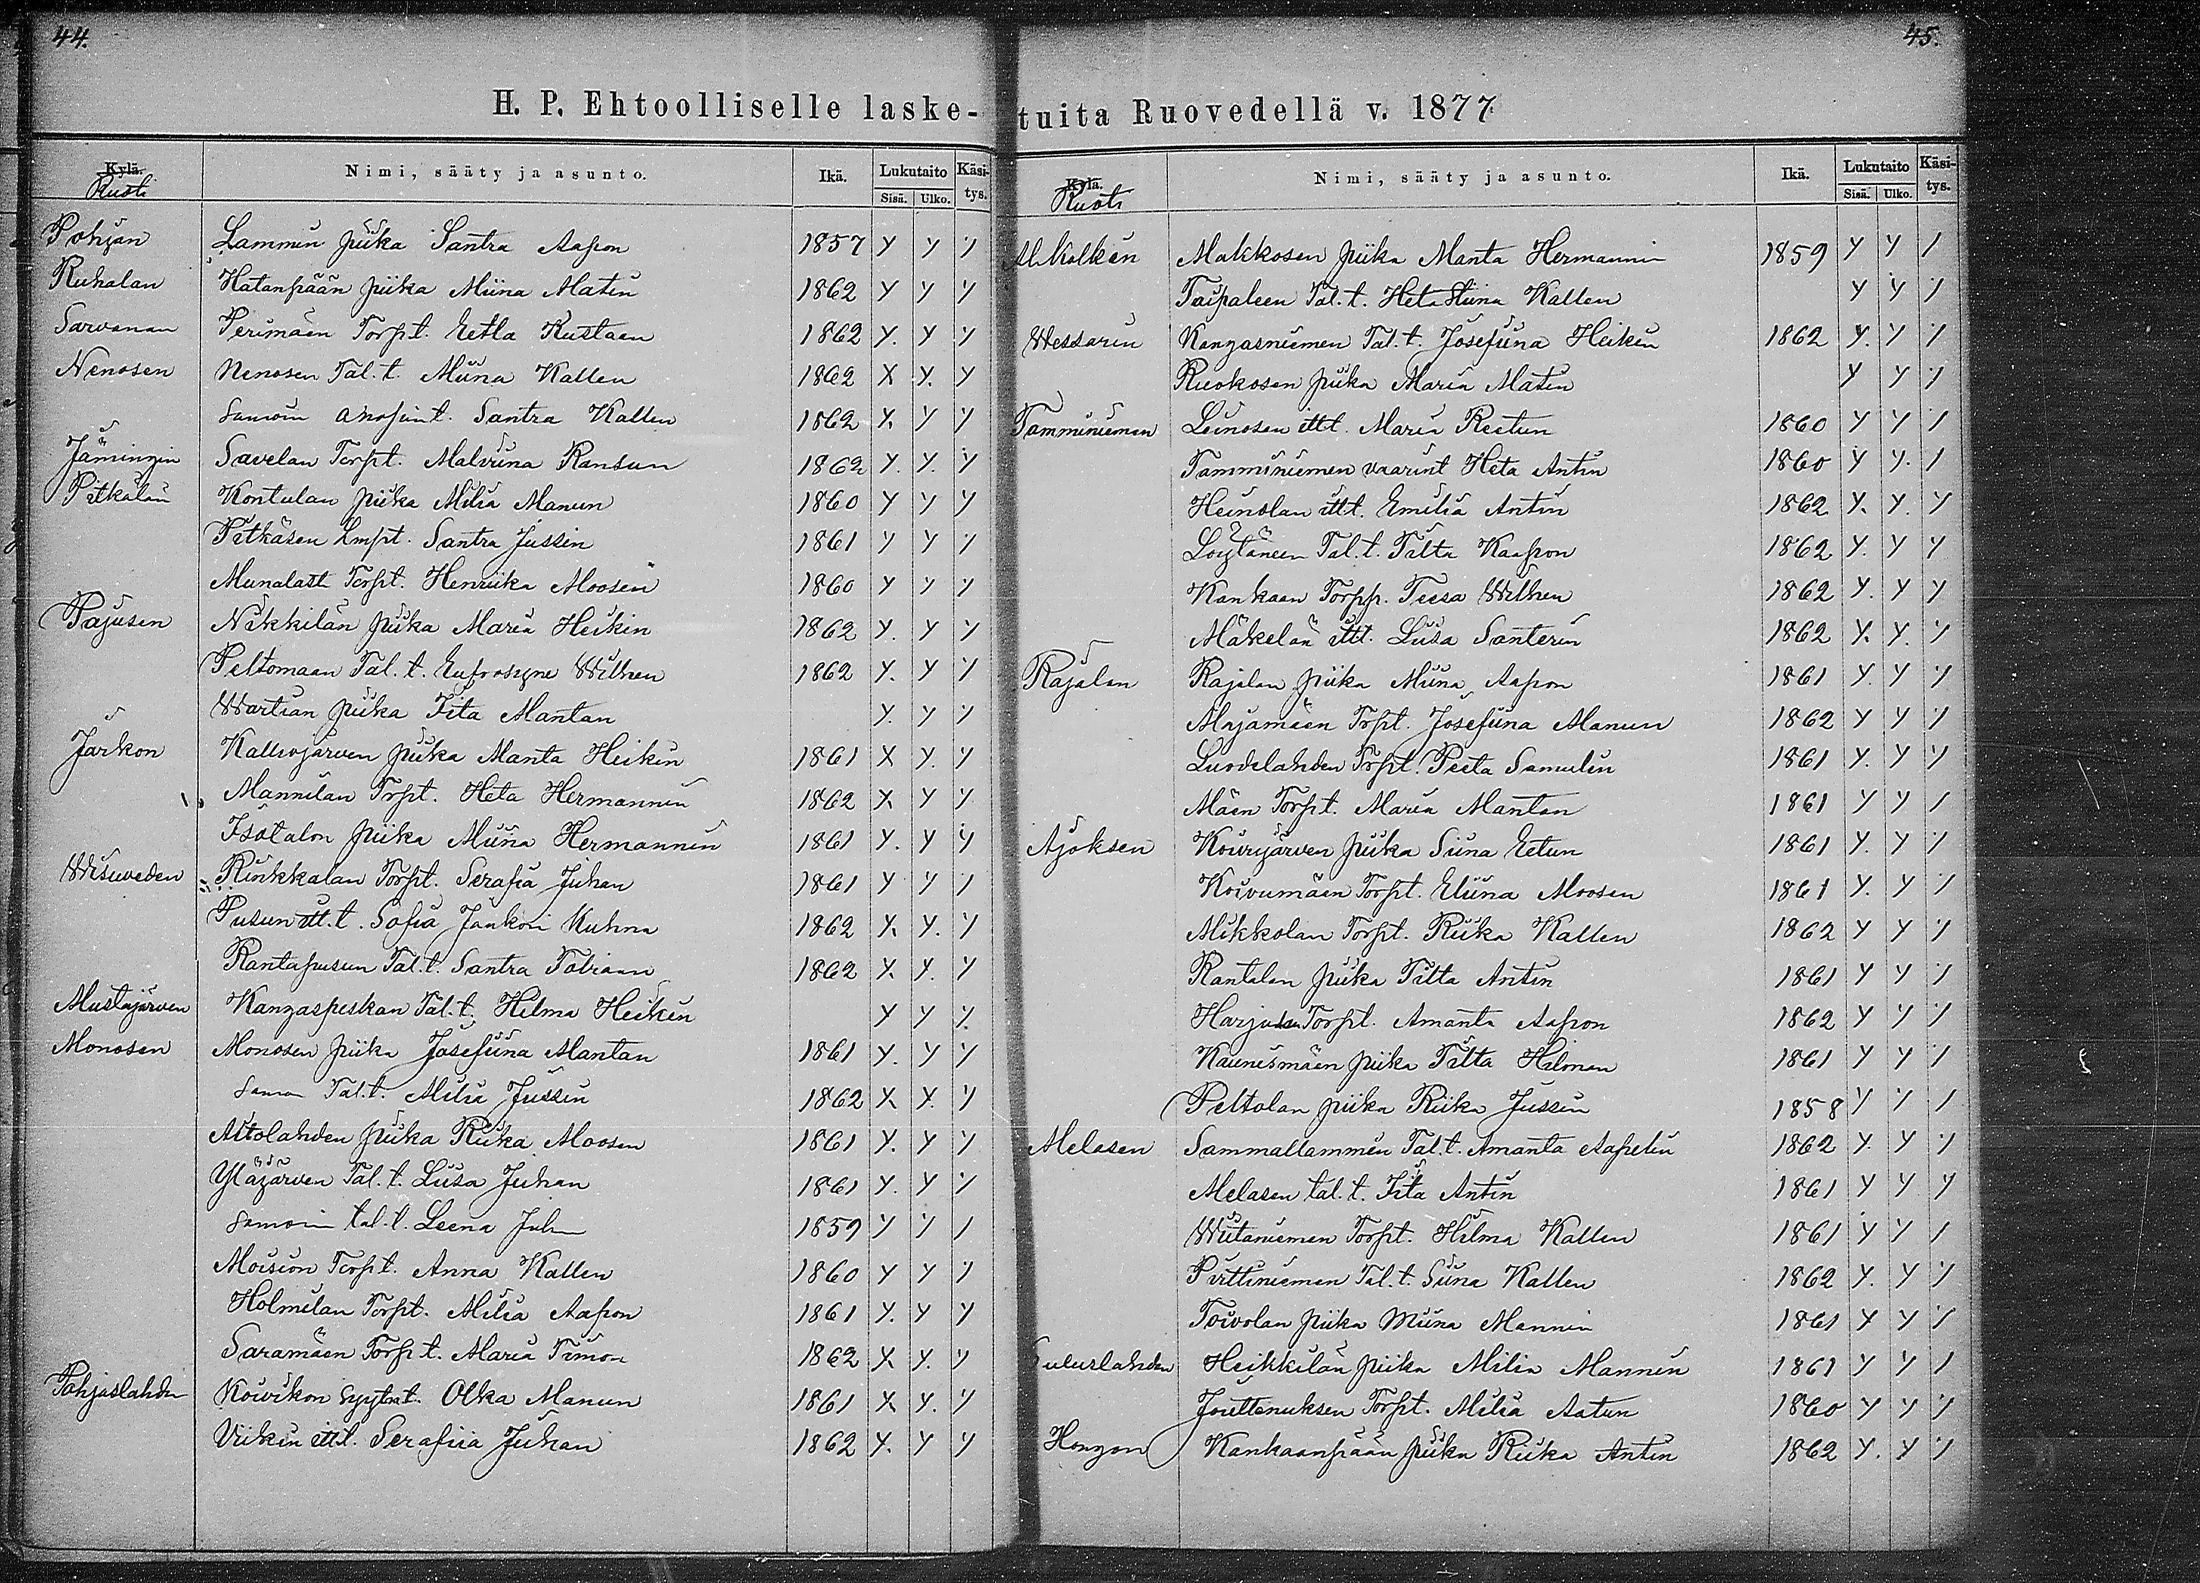 44.
H. P. Ehtoolliselle laske-
Kylä. Nimi, sääty ja asunto. Ikä. Lukutaito Käsi-
Ruoti Sisä. Ulko. tys.
Pohjan Lammin piika Santra Aapon 1857 y y y
Ruhalan Hatanpään piika Miina Matin 1862 y y y
Sarvanan Perimäen Torpt. Eetla Kustaan 1862 y. y y
Nenosen Nenosen Tal.t. Miina Kallen 1862 x y. y
Samoin Santra Kallen 1862 x. y y
Jämingin Savelan Torpt. Malviina Ransun 1862 y. y. y
Pitkälän Kontulan piika Milia Manun 1860 y y y
Pitkäsen Lmpt. Santra Jussin 1861 y y y
Torpt. Henriika Moosen 1860 y y y
Pajusen Nikkilän piika Maria Heikin 1862 y. y y
Peltomaan Tal.t. Eufrosyne Wilhen 1862 y. y y
Wartian piika Fiia Mantan y. y y
Jarkon Kalliojärven piika Manta Heikin 1861 x y. y
Mannilan Trpt. Heta Hermannin 1862 x y y
Isotalon piika Miina Hermannin 1861 y. y y
Wisuveden Rinkkalan Torpt. Serafia Juhan 1861 y y y
Pusun itl.t. Sofia Jankon Kuhna 1862 y. y. y
Rantapusun Tal.t. Santra Tobiaan 1862 y. y. y
Mustajärven Kangaspeskan Tal.t. Hilma Heikin y y y
Monosen Monosen piika Josefiina Mantan 1861 y. y y
Saman Tal.t. Milia Jussin 1862 x y. y
Aitolahden piika Riika Moosen 1861 y. y y
Yläjärven Tal.t. Liisa Juhan 1861 y. y y
Samoin tal.t. Leena Juh 1859 y y y
Moision Torpt. Anna Kallen 1860 y y y
Holmilan Torpt. Milia Aapon 1861 y. y y
Saramäen Torpt. Maria Timon 1862 x y. y
Pohjaslahden Koivikon Olka Manun 1861 x y. y
Viikin itl.t. Serafiia Juhan 1862 y. y y
45.
tuita Ruovedellä v. 1877
Kylä. Nimi, sääty ja asunto. Ikä. Lukutaito Käsi-
Ruoti Sisä. Ulko. tys.
Makkosen piika Manta Hermannin 1859 y y y
Taipaleen Tal.t. Heta Stiina Kallen y y y
Wessarin Kangasniemen Tal.t. Josefiina Heikin 1862 y. y y
Ruokosen piika Maria Matin y y y
Tamminiemen Leinosen itl.t. Maria Reetun 1860 y y y
Tamminiemen vaarint Heta Antin 1860 y y. y
Heinolan itl.t. Emilia Antin 1862 y. y. y
Löytäneen Tal.t. Tilta Kaapon 1862 y. y y
Kankaan Torpp. Tiesa Wilhen 1862 y. y y
Mäkelän itl.t. Liisa Santerin 1862 y. y. y
Rajalan Rajalan piika Miina Aapon 1861 y. y y
Majamäen Trpt. Josefiina Manun 1862 y y y
Luodelahden Trpt. Peeta Samulin 1861 y. y y
Mäen Torpt. Maria Mantan 1861 y y y
Ajoksen Kourujärven piika Siina Eetun 1861 y. y y
Koivumäen Torpt. Eliina Moosen 1861 y. y y
Mikkolan Torpt. Riika Kallen 1862 y y y
Rantalan piika Tilta Antin 1861 y y y
Harjulan Torpt. Amanta Aapon 1862 y y y
Kaunismäen piika Tilta Hilman 1861 y y y
Peltolan piika Riika Jussin 1858 y y y
Melasen Sammallammin Tal.t. Amanta Aapelin 1862 y. y y
Melasen tal.t. Fiia Antin 1861 y y y
Wiitaniemen Torpt. Hilma Kallen 1861 y y y
Pirttiniemen Tal.t. Siina Kallen 1862 y. y y
Toivolan piika Miina Mannin 1861 y y y
Heikkilän piika Milia Mannin 1861 y y y
Jouttenuksen Torpt. Milia Aatun 1860 y y y
Hongon Kankaanpään piika Riika Antin 1862 y. y y